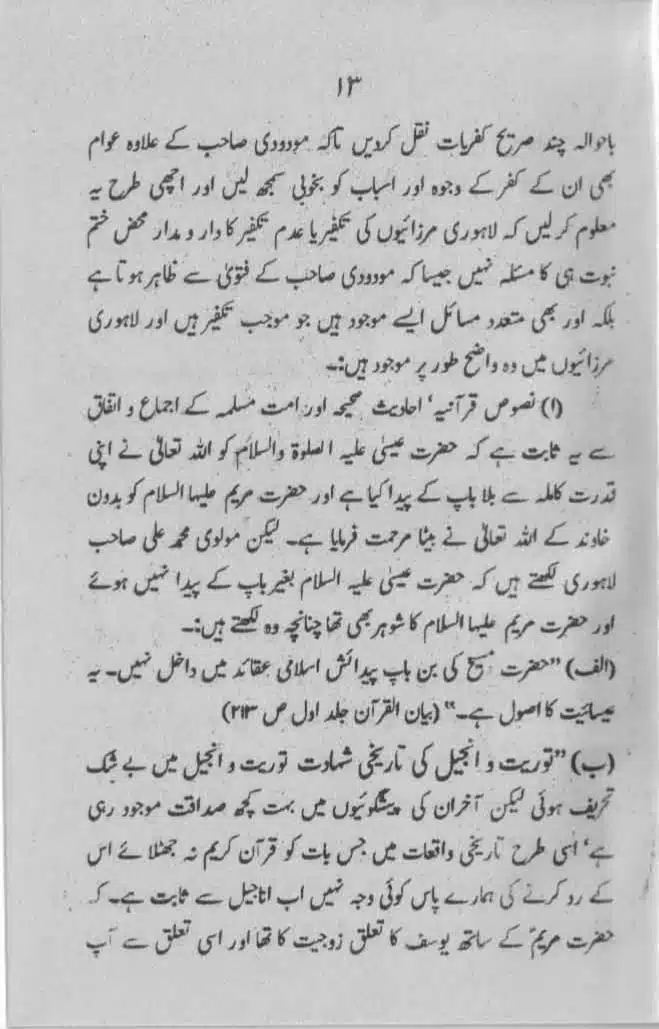 ۱۳
باحوالہ چند صریح کفریات نقل کردیں تاکہ مودودی صاحب کے علاوہ عوام
بھی ان کے کفر کے وجوہ اور اسباب کو بخوبی سمجھ لیں اور اچھی طرح یہ
معلوم کرلیں کہ لاہوری مرزائیوں کی تکفیر یا عدم تکفیر کا دار و مدار محض ختم
نبوت ہی کا مسئلہ نہیں جیسا کہ مودودی صاحب کے فتویٰ سے ظاہر ہوتا ہے
بلکہ اور بھی متعدد مسائل ایسے موجود ہیں جو موجب تکفیر ہیں اور لاہوری
مرزائیوں میں وہ واضح طور پر موجود ہیں:۔
(۱) نصوص قرآنیہ‘ احادیث صحیحہ اور امت مسلمہ کے اجماع و اتفاق
سے یہ ثابت ہے کہ حضرت عیسیٰ علیہ الصلوۃ والسلام کو اللہ تعالیٰ نے اپنی
قدرت کاملہ سے بلا باپ کے پیدا کیا ہے اور حضرت مریم علیہا السلام کو بدون
خاوند کے اللہ تعالیٰ نے بیٹا مرحمت فرمایا ہے۔ لیکن مولوی محمد علی صاحب
لاہوری لکھتے ہیں کہ حضرت عیسیٰ علیہ السلام بغیر باپ کے پیدا نہیں ہوئے
اور حضرت مریم علیہا السلام کا شوہر بھی تھا چنانچہ وہ لکھتے ہیں:۔
(الف) ”حضرت مسیح کی بن باپ پیدائش اسلامی عقائد میں داخل نہیں۔ یہ
عیسائیت کا اصول ہے۔“ (بیان القرآن جلد اول ص ۲۱۳)
(ب) ”توریت و انجیل کی تاریخی شہادت توریت و انجیل میں بے شک
تحریف ہوئی لیکن آخر ان کی پیشگوئیوں میں بہت کچھ صداقت موجود رہی
ہے‘ اسی طرح تاریخی واقعات میں جس بات کو قرآن کریم نہ جھٹلائے اس
کے رد کرنے کی ہمارے پاس کوئی وجہ نہیں اب اناجیل سے ثابت ہے۔ کہ
حضرت مریمؑ کے ساتھ یوسف کا تعلق زوجیت کا تھا اور اسی تعلق سے آپ